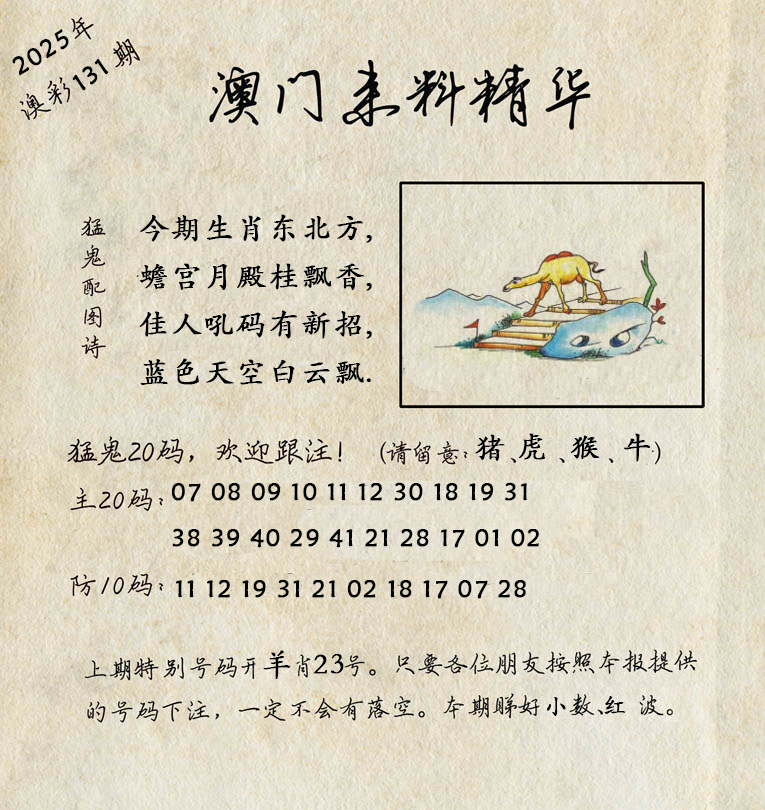 2025年
澳彩131期
澳门来料精华
猛鬼配图诗
今期生肖东北方,
蟾宫月殿桂飘香,
佳人吼码有新招,
蓝色天空白云飘.
猛鬼20码，欢迎跟注！（请留意：猪、虎、猴、牛）
主20码：07 08 09 10 11 12 30 18 19 31
38 39 40 29 41 21 28 17 01 02
防10码：11 12 19 31 21 02 18 17 07 28
上期特别号码开羊肖23号。只要各位朋友按照本报提供
的号码下注，一定不会有落空。本期睇好小数、红 波。